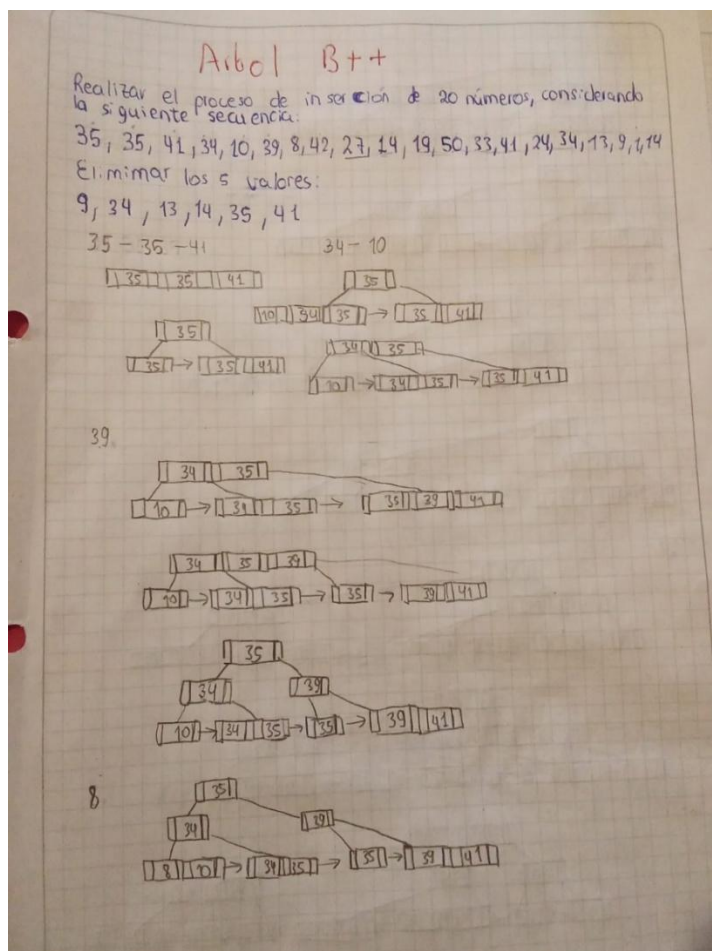 Arbol B++
Realizar el proceso de inserción de 20 números, considerando
la siguiente secuencia:
35, 35, 41, 34, 10, 39, 8, 42, 27, 14, 19, 50, 33, 41, 24, 34, 13, 9, 1, 14
Elimimar los 5 valores:
9, 34, 13, 14, 35, 41
35 - 35 - 41 34 - 10
35 35 41
35
10 34 35 → 35 41
35
35 → 35 41
34 35
10 → 34 35 → 35 41
39.
34 35
10 → 34 35 → 35 39 41
34 35 39
10 → 34 35 → 35 → 39 41
35
34 39
10 → 34 35 → 35 → 39 41
8
35
34 39
8 10 → 34 35 → 35 → 39 41